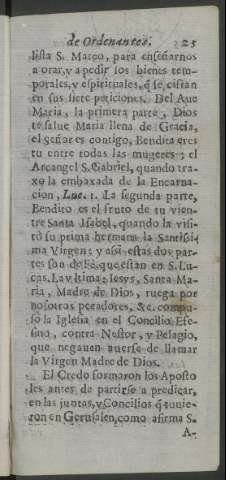 de Ordenantes. 25
lista S. Mateo, para enseñarnos
a orar, y a pedir los bienes tem-
porales, y espirituales, q̃ se cifran
en sus siete peticiones. Del Aue
Maria, la primera parte, Dios
te salue Maria llena de Gracia,
el Señor es contigo, Bendita eres
tu entre todas las mugeres: el
Arcangel S. Gabriel, quando tra-
xo la embaxada de la Encarna-
cion, Luc. 1. La segunda parte,
Bendito es el fruto de tu vien-
tre Santa Isabel, quando la visi-
tò su prima hermana la Santissi-
ma Virgen: y assi estas dos par-
tes son de Fè, que estan en S. Lu-
cas. La vltima: Iesvs, Santa Ma-
ria, Madre de Dios, ruega por
nosotros pecadores, &c. compu-
so la Iglesia en el Concilio Efe-
sino, contra Nestor, y Pelagio,
que negauen auerse de llamar
la Virgen Madre de Dios.
El Credo formaron los Aposto
les antes de partirse a predicar,
en las juntas, y Concilios q̃ tuuie-
ron en Gerusalen, como afirma S.
A-